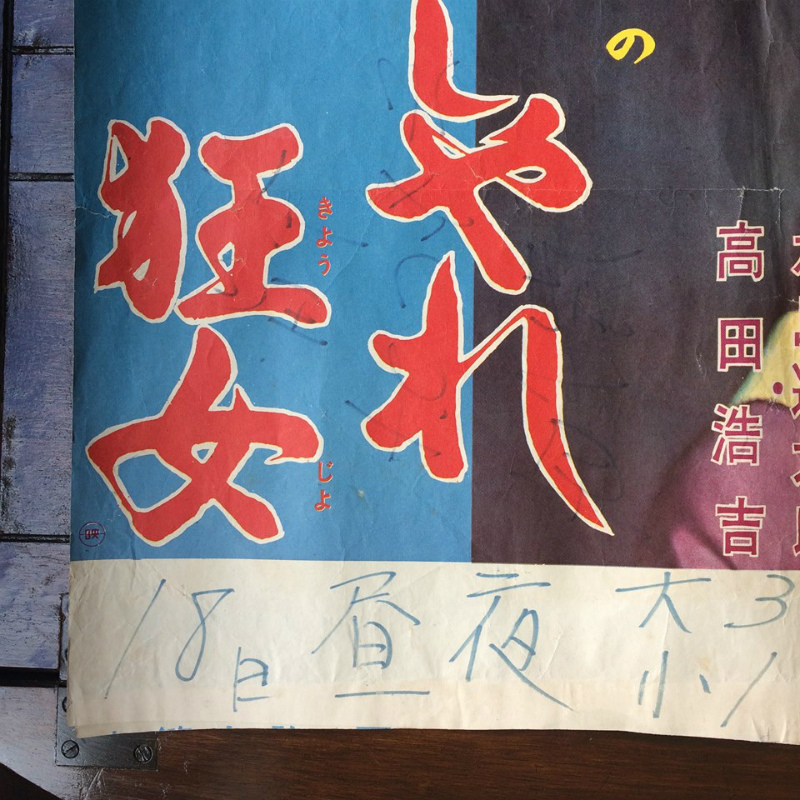 の
高田浩吉
しやれ
狂女
きようじよ
映
18日 昼夜 大3
小1